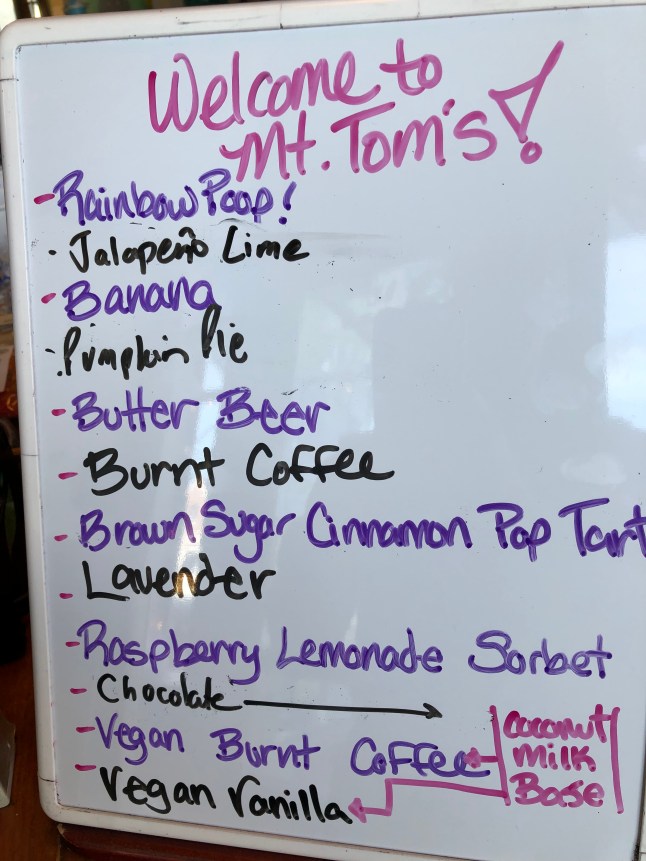 Welcome to
Mt. Tom's!
- Rainbow Poop!
· Jalapeño Lime
- Banana
· Pumpkin Pie
- Butter Beer
- Burnt Coffee
- Brown Sugar Cinnamon Pop Tart
- Lavender
- Raspberry Lemonade Sorbet
- Chocolate
- Vegan Burnt Coffee
- Vegan Vanilla
Coconut
Milk
Base